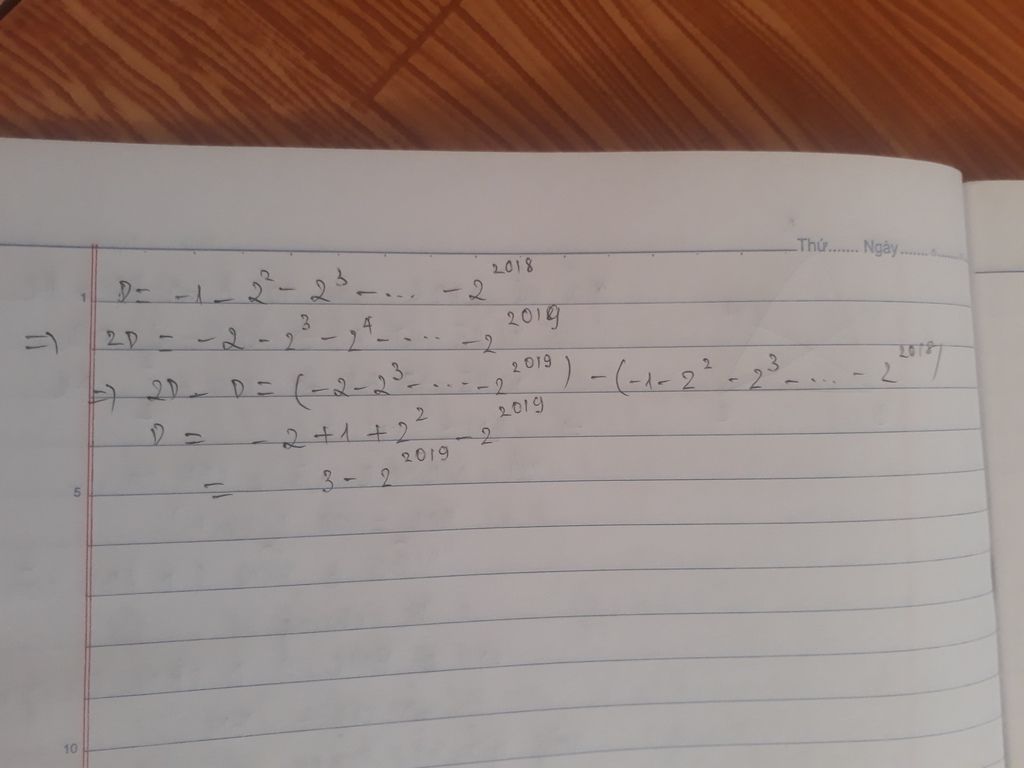 Thứ....... Ngày.........
1 D = -1 - 2² - 2³ - ... - 2²⁰¹⁸
=> 2D = -2 - 2³ - 2⁴ - ... - 2²⁰¹⁹
=> 2D - D = (-2 - 2³ - ... - 2²⁰¹⁹) - (-1 - 2² - 2³ - ... - 2²⁰¹⁸)
D = -2 + 1 + 2² - 2²⁰¹⁹
5 = 3 - 2²⁰¹⁹
10